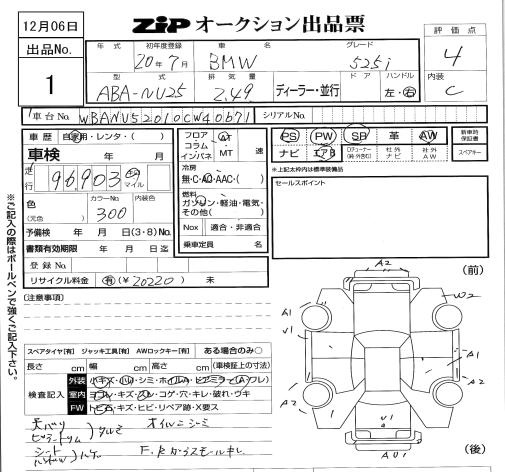 12月06日
ZIP オークション出品票
出品No.
1
年式
初年度登録
20年7月
車名
BMW
グレード
525i
評価点
4
型式
ABA-NU25
排気量
2.49
ディーラー・並行
ドア
ハンドル
左・右
内装
C
車台No.
WBANU52010CW40671
シリアルNo.
車歴
自家用・レンタ・( )
車検 年 月
走行
96,903
マイル
色
(元色)
カラーNo.
300
内装色
予備検 年 月 日(3・8)No.
書類有効期限 年 月 日迄
登録No.
リサイクル料金
有(¥20220) 未
フロア
コラム
インパネ
AT
MT
速
冷房
無・C・AC・AAC・( )
燃料
ガソリン・軽油・電気・
その他( )
Nox
適合・非適合
乗車定員 名
PS
PW
SR
革
AW
ナビ
エアB
社外
ナビ
社外
AW
新車時
保証書
スペアキー
※上記太枠内は標準装備品
セールスポイント
※ご記入の際はボールペンで強くご記入下さい。
(注意事項)
スペアタイヤ[有] ジャッキ工具[有] AWロックキー[有] ある場合のみ○
長さ cm 幅 cm 高さ cm (車検証上の寸法)
検査記入
外装
室内
内装・キズ・スレ・コゲ・穴・キレ・破れ・ウキ
FW
トビ石・キズ・ヒビ・リペア跡・X要ス
天バリ
ピラートリム
タルミ
オイルニジミ
シート
ハンドル
ハゲ
(前)
A2
W2
A1
V1
A1
A2
A2
V1
AU1
(後)